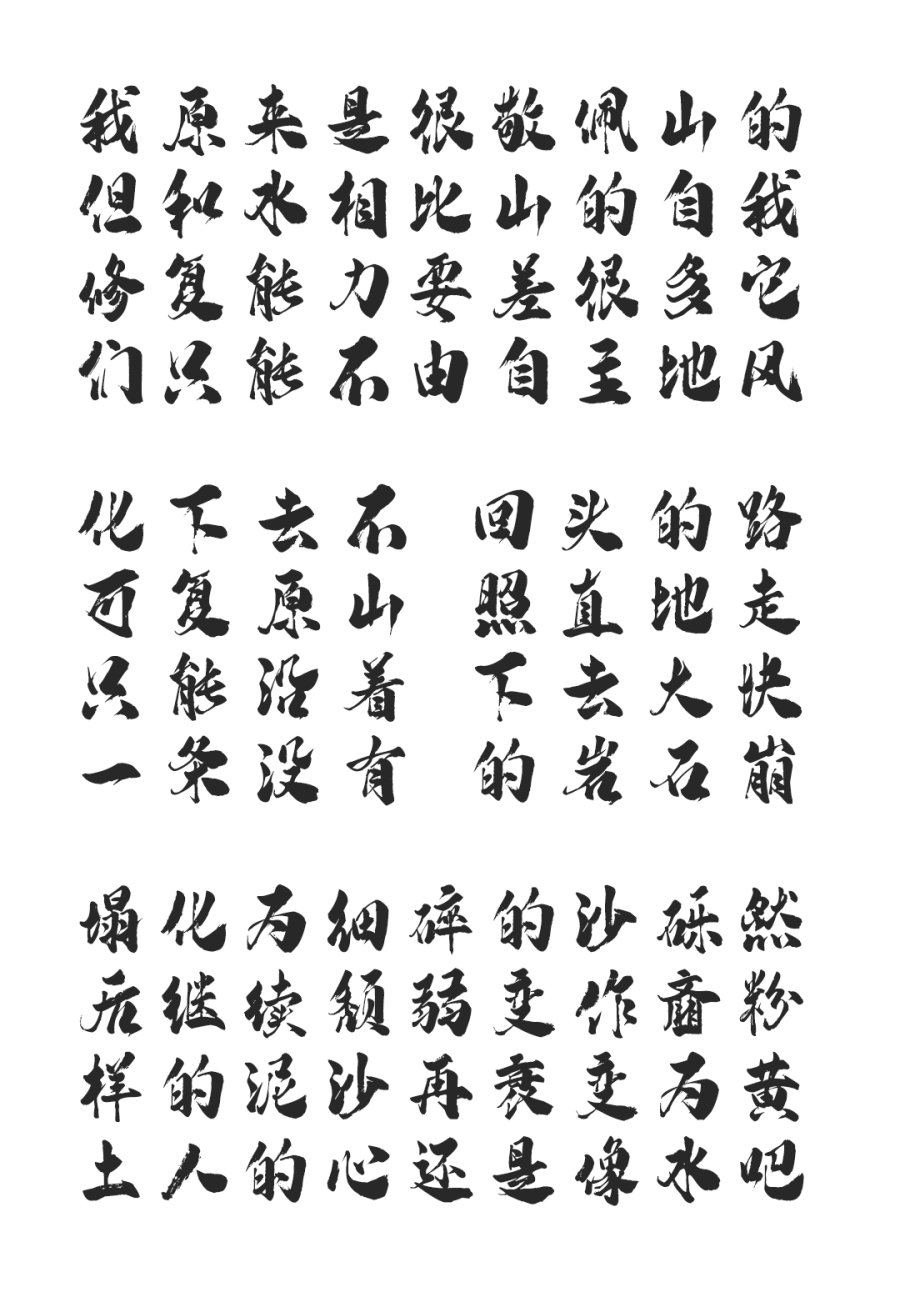 我原来是很敬佩山的
但和水相比山的自我
修复能力要差很多它
们只能不由自主地风
化下去不
可复原山
只能沿着
一条没有
回头的路
照直地走
下去大快
的岩石崩
塌化为细碎的沙砾然
后继续颓弱变作齑粉
样的泥沙再衰变为黄
土人的心还是像水吧